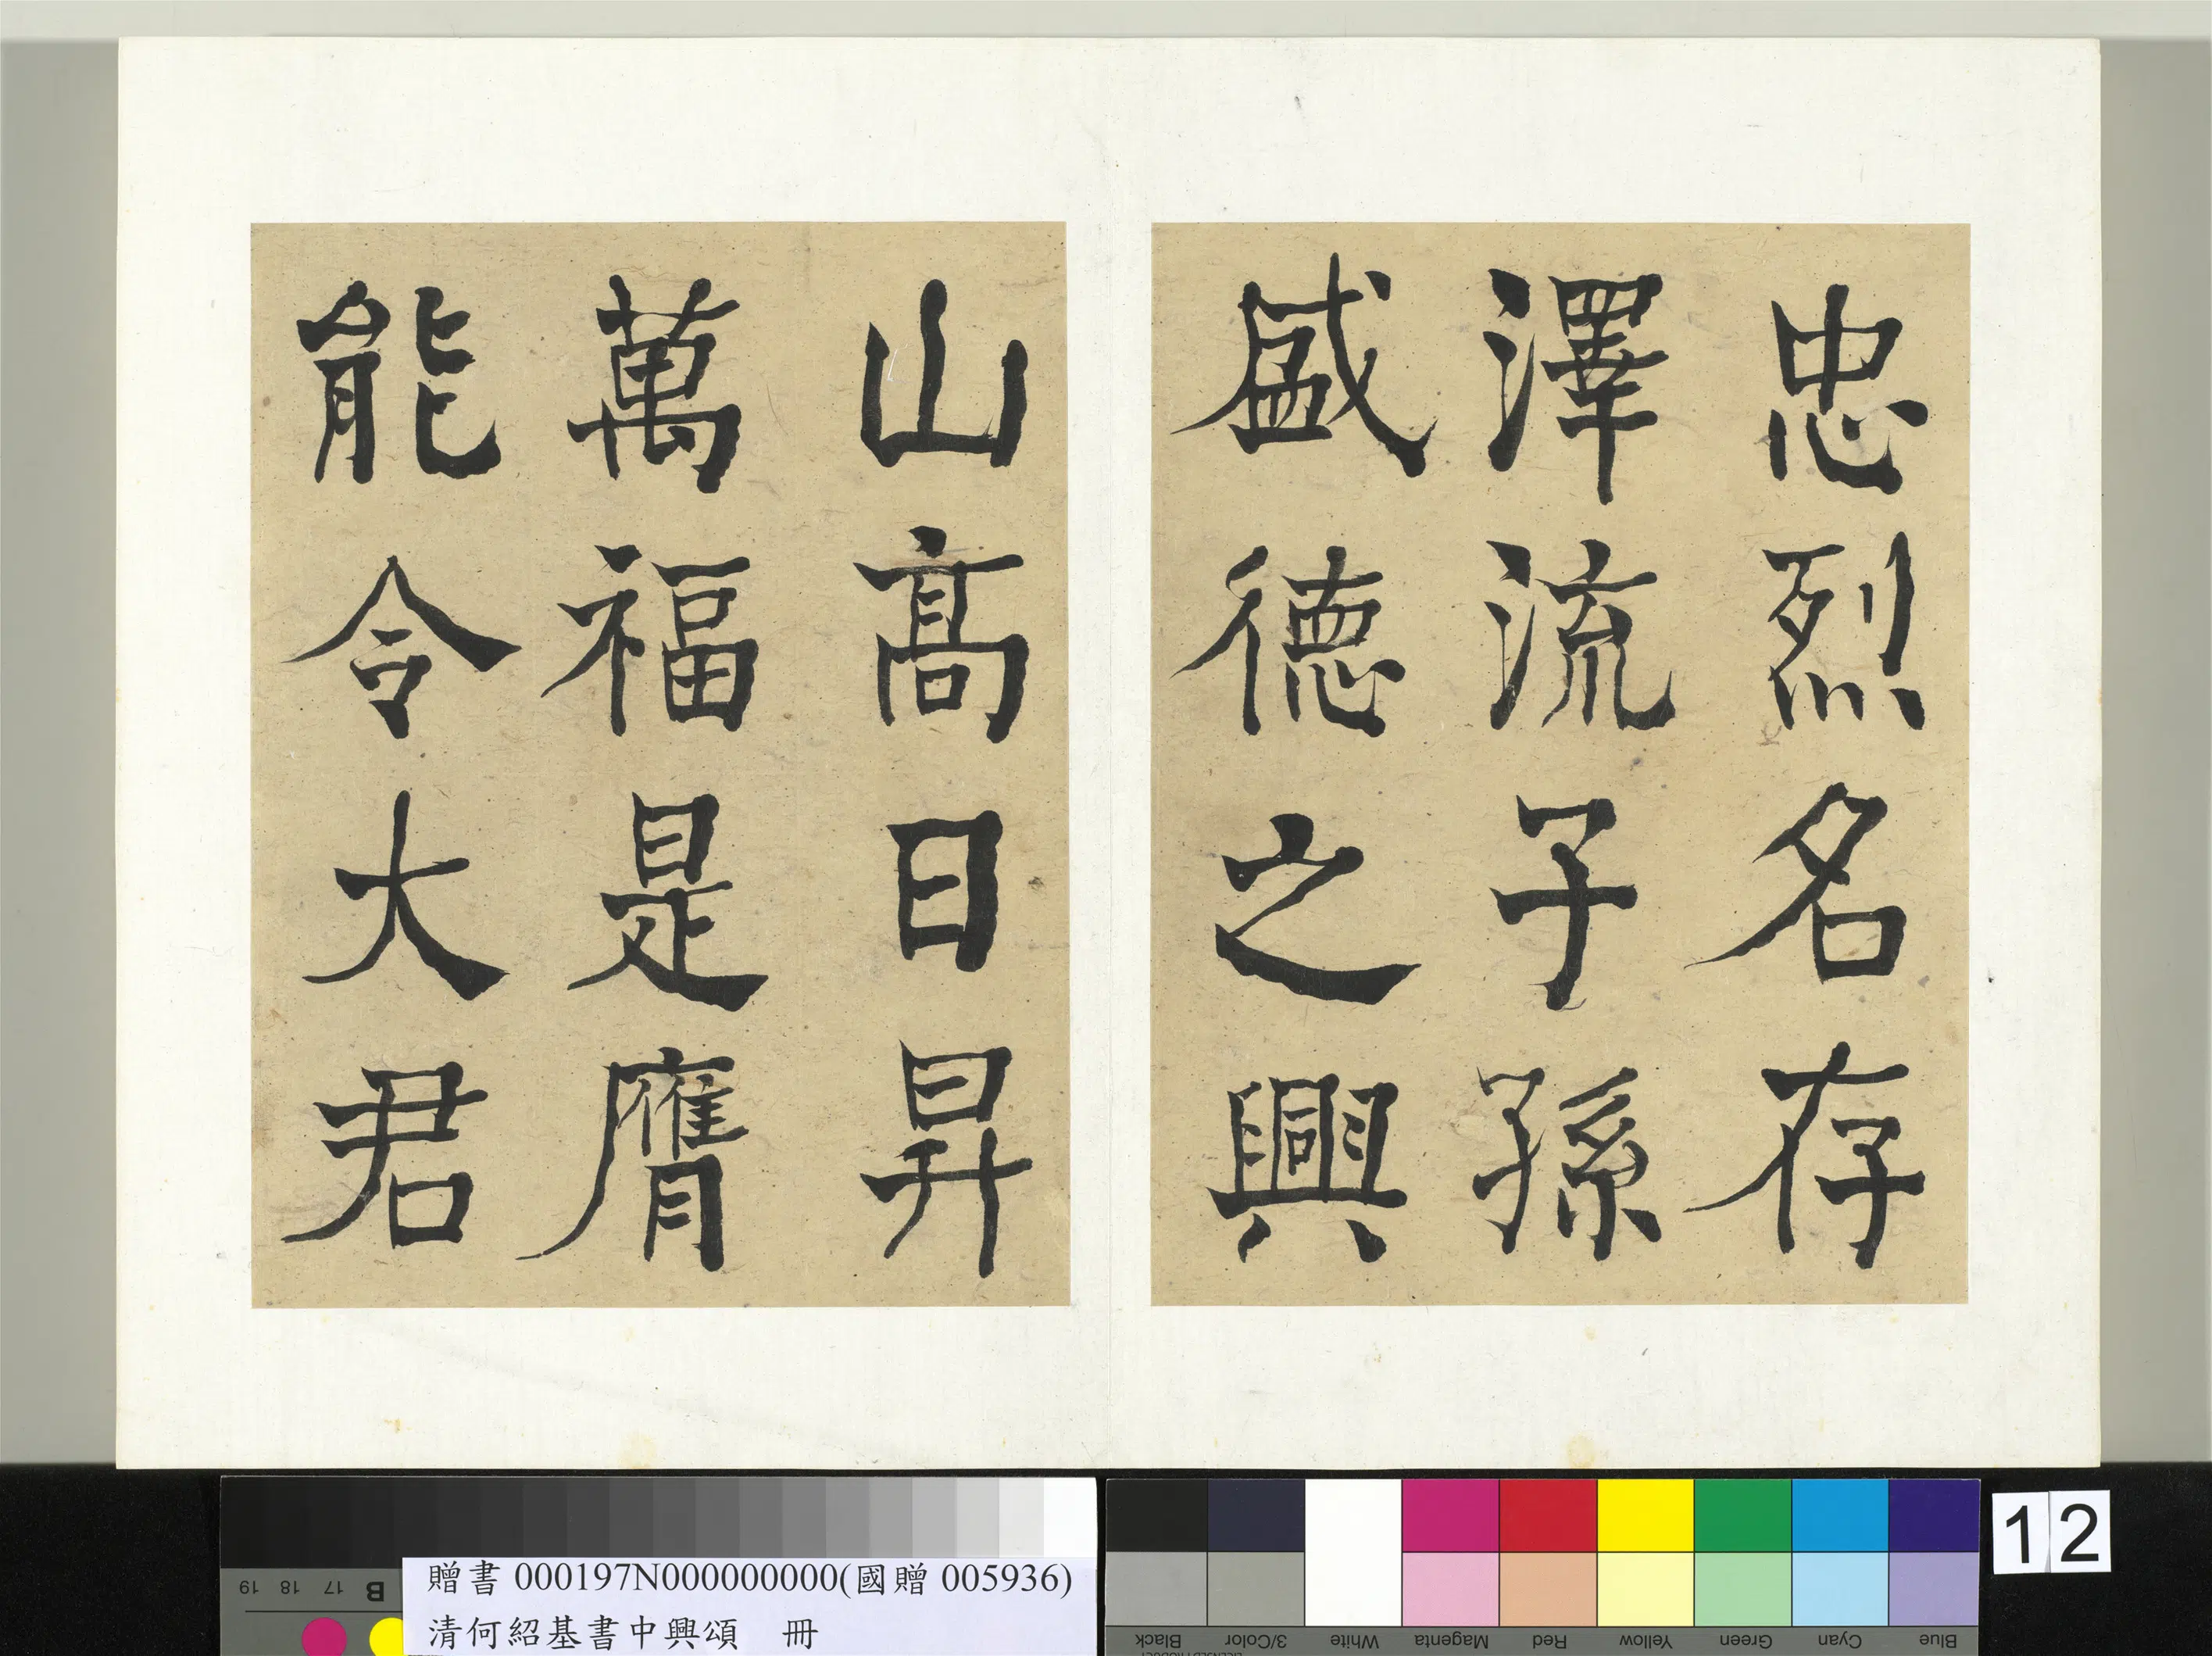 忠烈名存
澤流子孫
盛德之興
山高日昇
萬福是膺
能令大君
贈書 000197N000000000(國贈 005936)
清何紹基書中興頌 冊
19 18 17 B
Black 3/Color White Magenta Red Yellow Green Cyan Blue
12